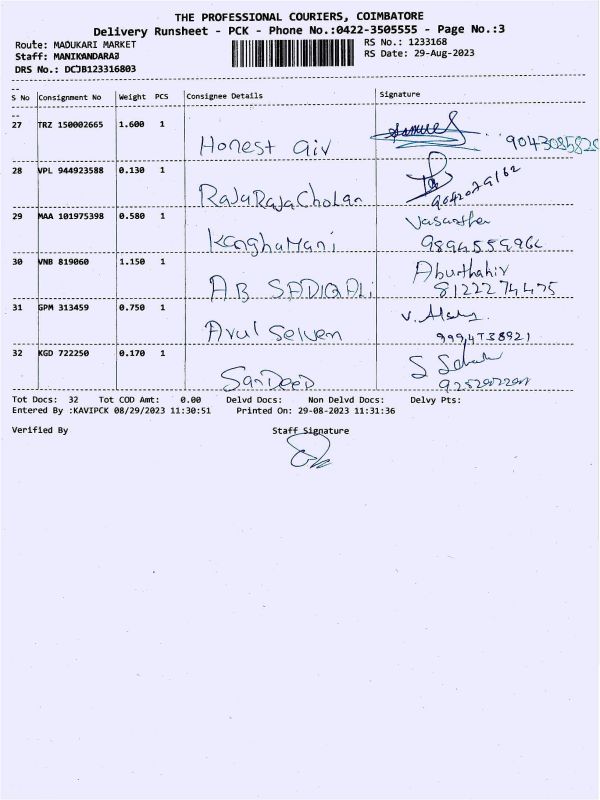 THE PROFESSIONAL COURIERS, COIMBATORE
Delivery Runsheet - PCK - Phone No.:0422-3505555 - Page No.:3
Route: MADUKARI MARKET RS No.: 1233168
Staff: MANIKANDARAJ RS Date: 29-Aug-2023
DRS No.: DCJB123316803
S No Consignment No Weight PCS Consignee Details Signature
27 TRZ 150002665 1.600 1 Honest air Samuel 9043085820
28 VPL 944923588 0.130 1 RajaRajaCholan 9042079162
29 MAA 101975398 0.580 1 KanghaMani Vasantha
30 VNB 819060 1.150 1 AB SADIQALi Aburthahir
8122274475
31 GPM 313459 0.750 1 Arul Selven
9994738921
32 KGD 722250 0.170 1 SanDeep
Tot Docs: 32 Tot COD Amt: 0.00 Delvd Docs: Non Delvd Docs: Delvy Pts:
Entered By :KAVIPCK 08/29/2023 11:30:51 Printed On: 29-08-2023 11:31:36
Verified By Staff Signature